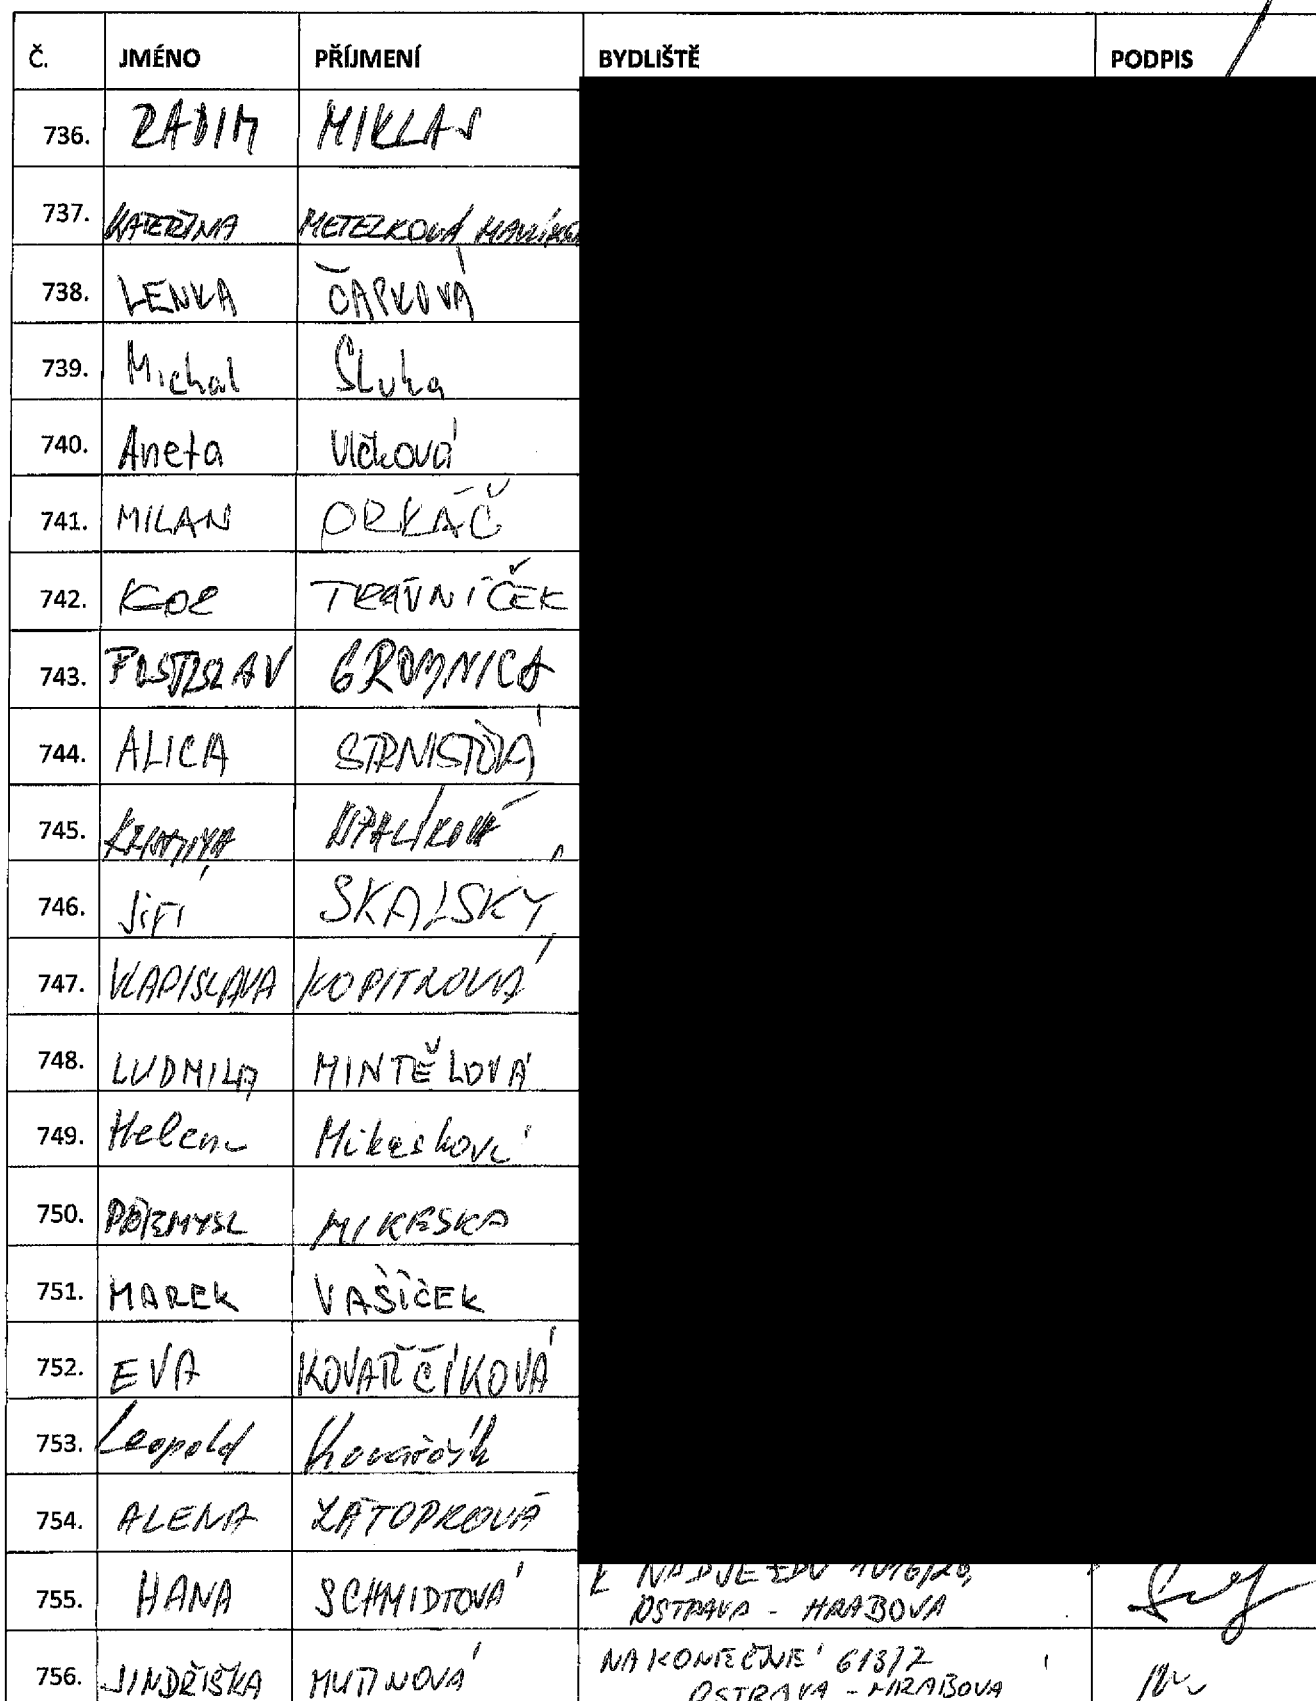 Č. JMÉNO PŘÍJMENÍ BYDLIŠTĚ PODPIS
736. RADIM MIKLAS
737. KATEŘINA METEZKOVÁ
738. LENKA ČAPKOVÁ
739. Michal Sluka
740. Aneta Vlčková
741. MILAN ORKÁČ
742. TRÁVNÍČEK
743. ROSTISLAV GROMNICA
744. ALICA STRNISTOVÁ
745. KRISTINA
746. Jiří SKALSKÝ
747. VLADISLAVA KOPITKOVÁ
748. LUDMILA MINTĚLOVÁ
749. Helena Mikesková
750. PŘEMYSL MIKESKA
751. MAREK VAŠÍČEK
752. EVA KOVAŘČÍKOVÁ
753. Leopold Kovařčík
754. ALENA ZÁTOPKOVÁ
K NADJEZDU
755. HANA SCHMIDTOVÁ
OSTRAVA - HRABOVA
NA KONEČNÉ 613/2
756. JINDŘIŠKA MUTINOVÁ
OSTRAVA - HRABOVA